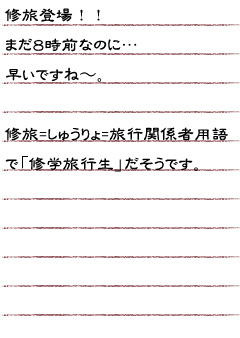 修旅登場！！
まだ８時前なのに…
早いですね～。
修旅=しゅうりょ=旅行関係者用語
で「修学旅行生」だそうです。